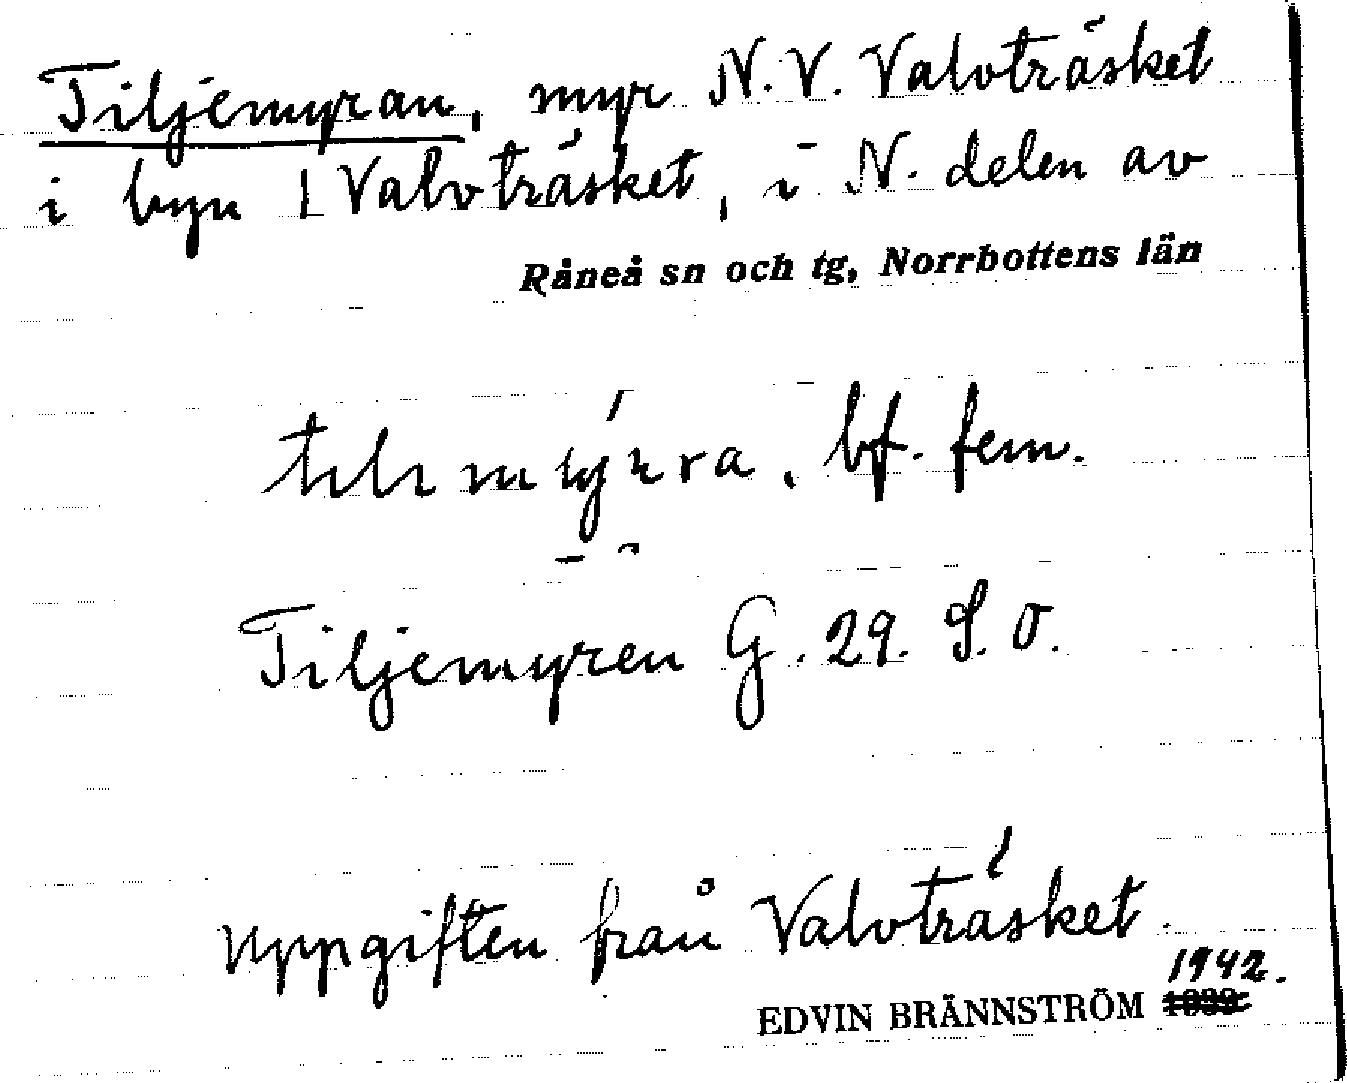 Tiljemyran, myr N.V. Valvträsket
i byn Valvträsket, i N. delen av
Råneå sn och tg, Norrbottens län
bf. fem.
Tiljemyren G. 29. S.O.
Uppgiften från Valvträsket.
1942.
EDVIN BRÄNNSTRÖM